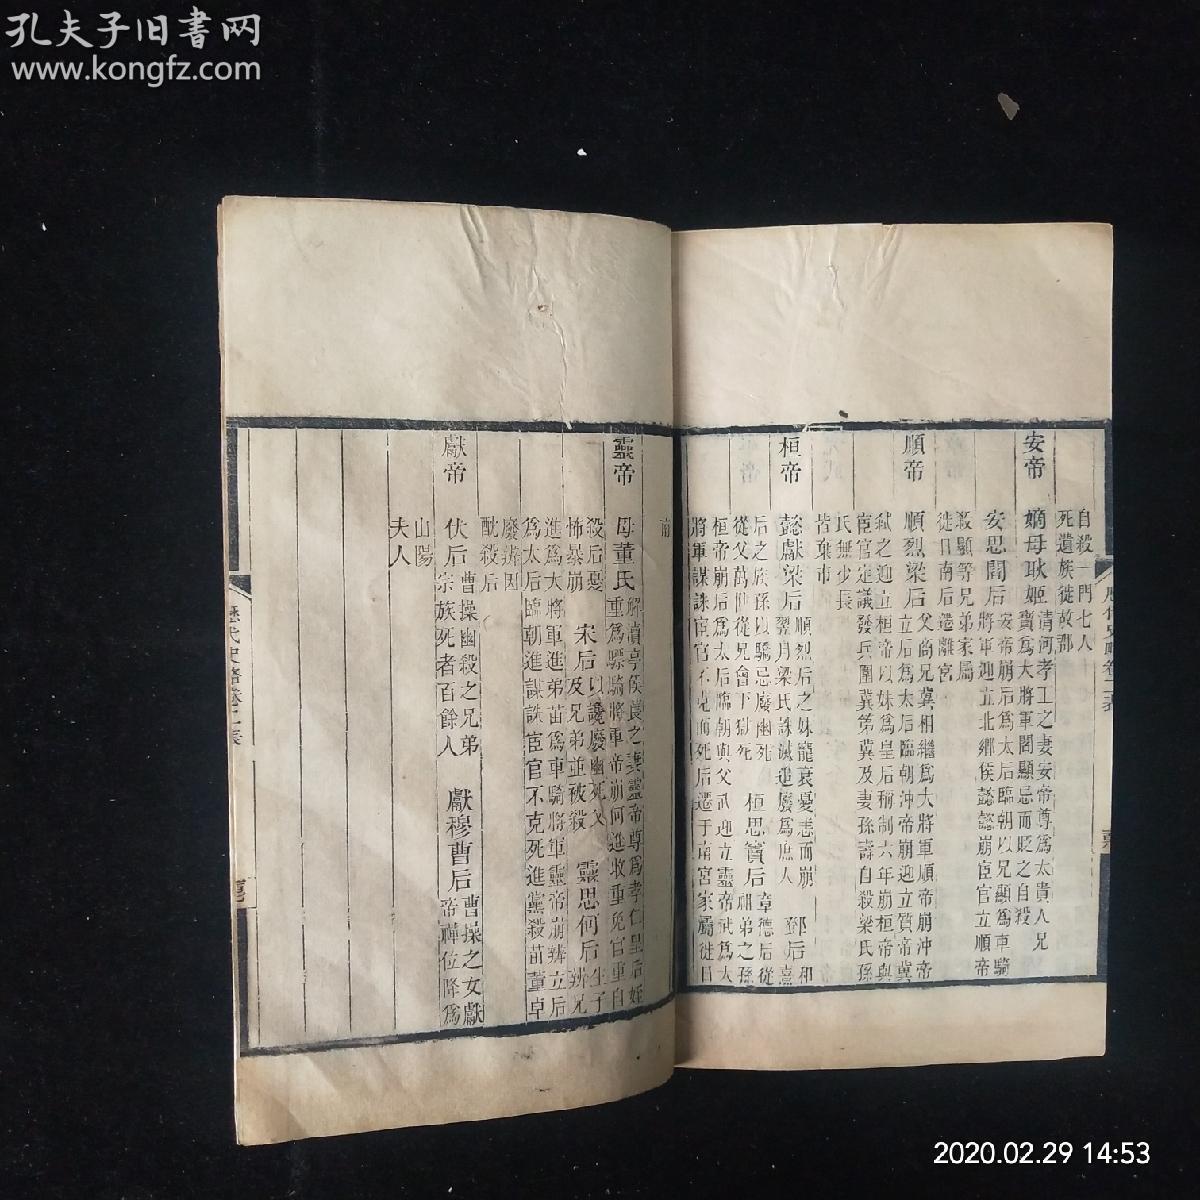 孔夫子旧书网
www.kongfz.com
自殺一門七人
死遺族徙故郡
安帝
嫡母耿姬
清河孝王之妻安帝尊爲太貴人兄
寶爲大將軍閻顯忌而貶之自殺
安思閻后
安帝崩后爲太后臨朝以兄顯爲車騎
將軍迎立北鄉侯懿懿崩宦官立順帝
殺顯等兄弟家屬
徙日南后遷離宮
順帝
順烈梁后
父商兄冀相繼爲大將軍順帝崩沖帝
立后爲太后臨朝沖帝崩迎立質帝冀
弑之迎立桓帝以妹爲皇后稱制六年崩桓帝與
宦官定議發兵圍冀第冀及妻孫壽自殺梁氏孫
氏無少長
皆棄市
桓帝
懿獻梁后
順烈后之妹寵衰憂恚而崩
翌月梁氏誅滅追廢爲庶人
鄧后
和熹
后之族孫以驕忌廢幽死
從父萬世從兄會下獄死
桓思竇后
章德后從
祖弟之孫
桓帝崩后爲太后臨朝與父武迎立靈帝武爲大
將軍謀誅宦官不克而死后遷于南宮家屬徙日
南
靈帝
母董氏
解瀆亭侯萇之妻靈帝尊爲孝仁皇后姪
重爲驃騎將軍帝崩何進收重免官重自
殺后憂
怖暴崩
宋后
以讒廢幽死父
及兄弟並被殺
靈思何后
生子
辨兄
進爲大將軍進弟苗爲車騎將軍靈帝崩辨立后
爲太后臨朝進謀誅宦官不克死進黨殺苗董卓
廢辨因
酖殺后
獻帝
伏后
曹操幽殺之兄弟
宗族死者百餘人
獻穆曹后
曹操之女獻
帝禪位降爲
山陽
夫人
歷代史略卷二表
2020.02.29 14:53